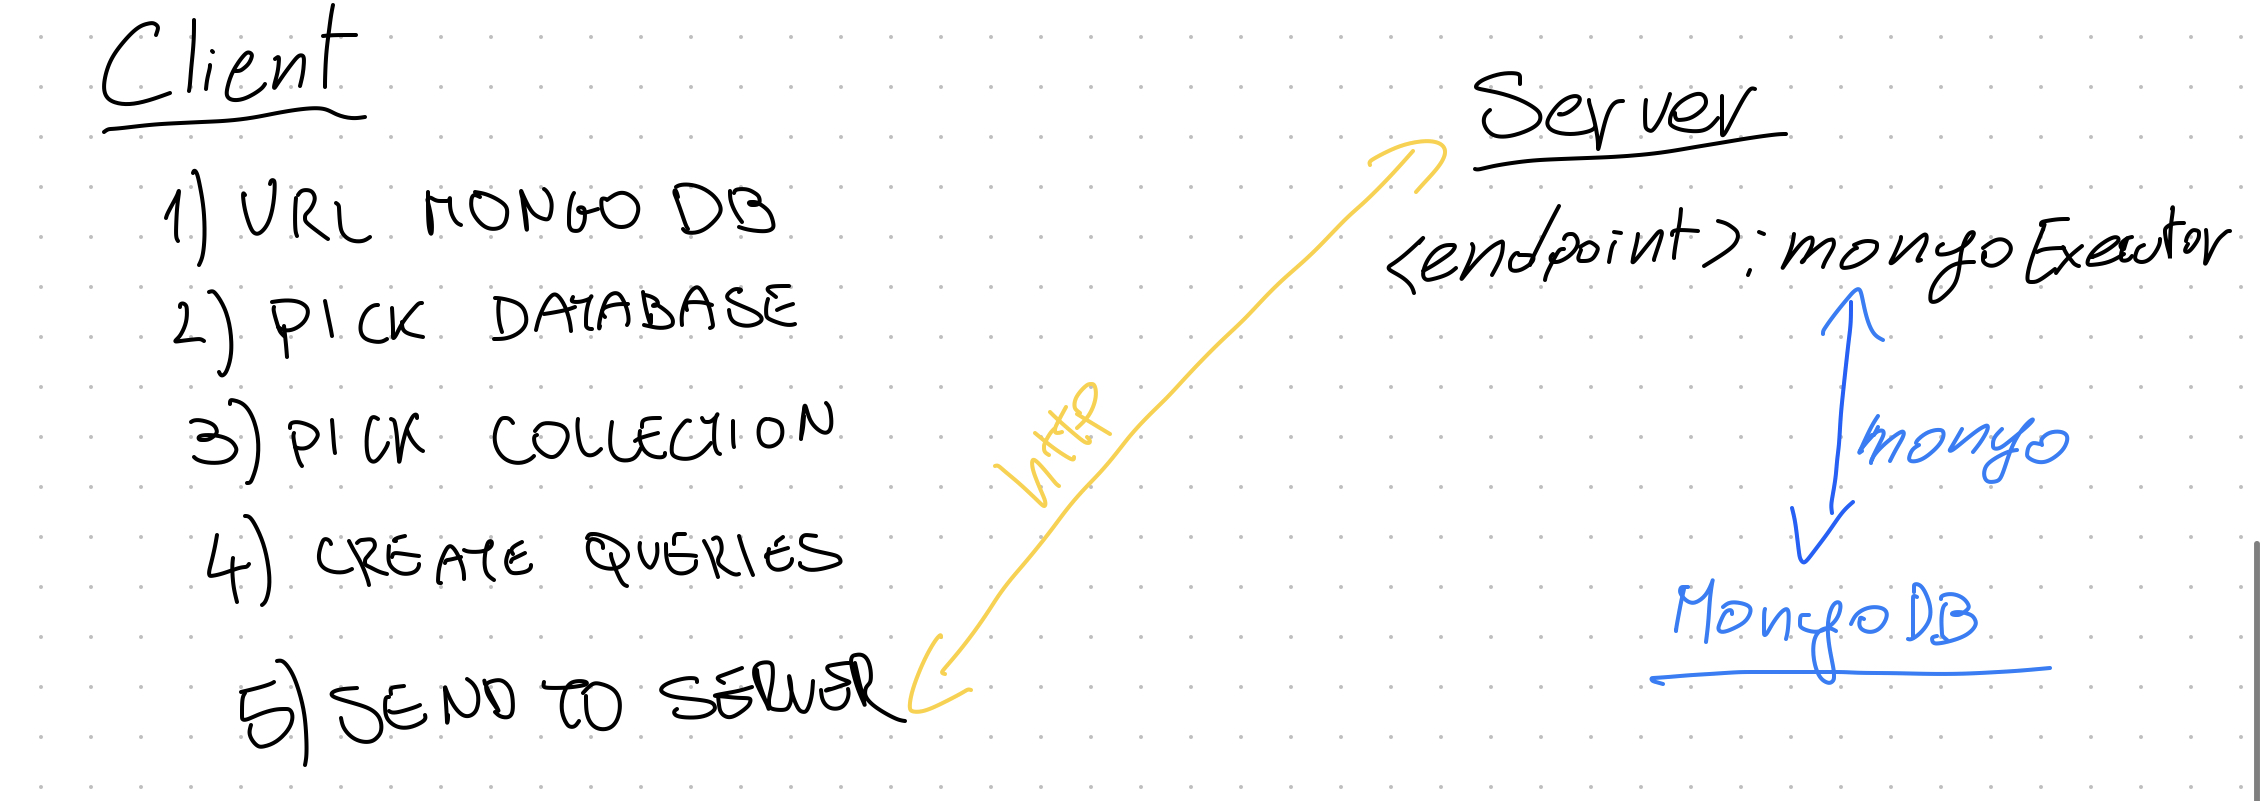 Client
1) URL MONGO DB
2) PICK DATABASE
3) PICK COLLECTION
4) CREATE QUERIES
5) SEND TO SERVER
HTTP
Server
<endpoint>: mongoExecutor
mongo
MongoDB